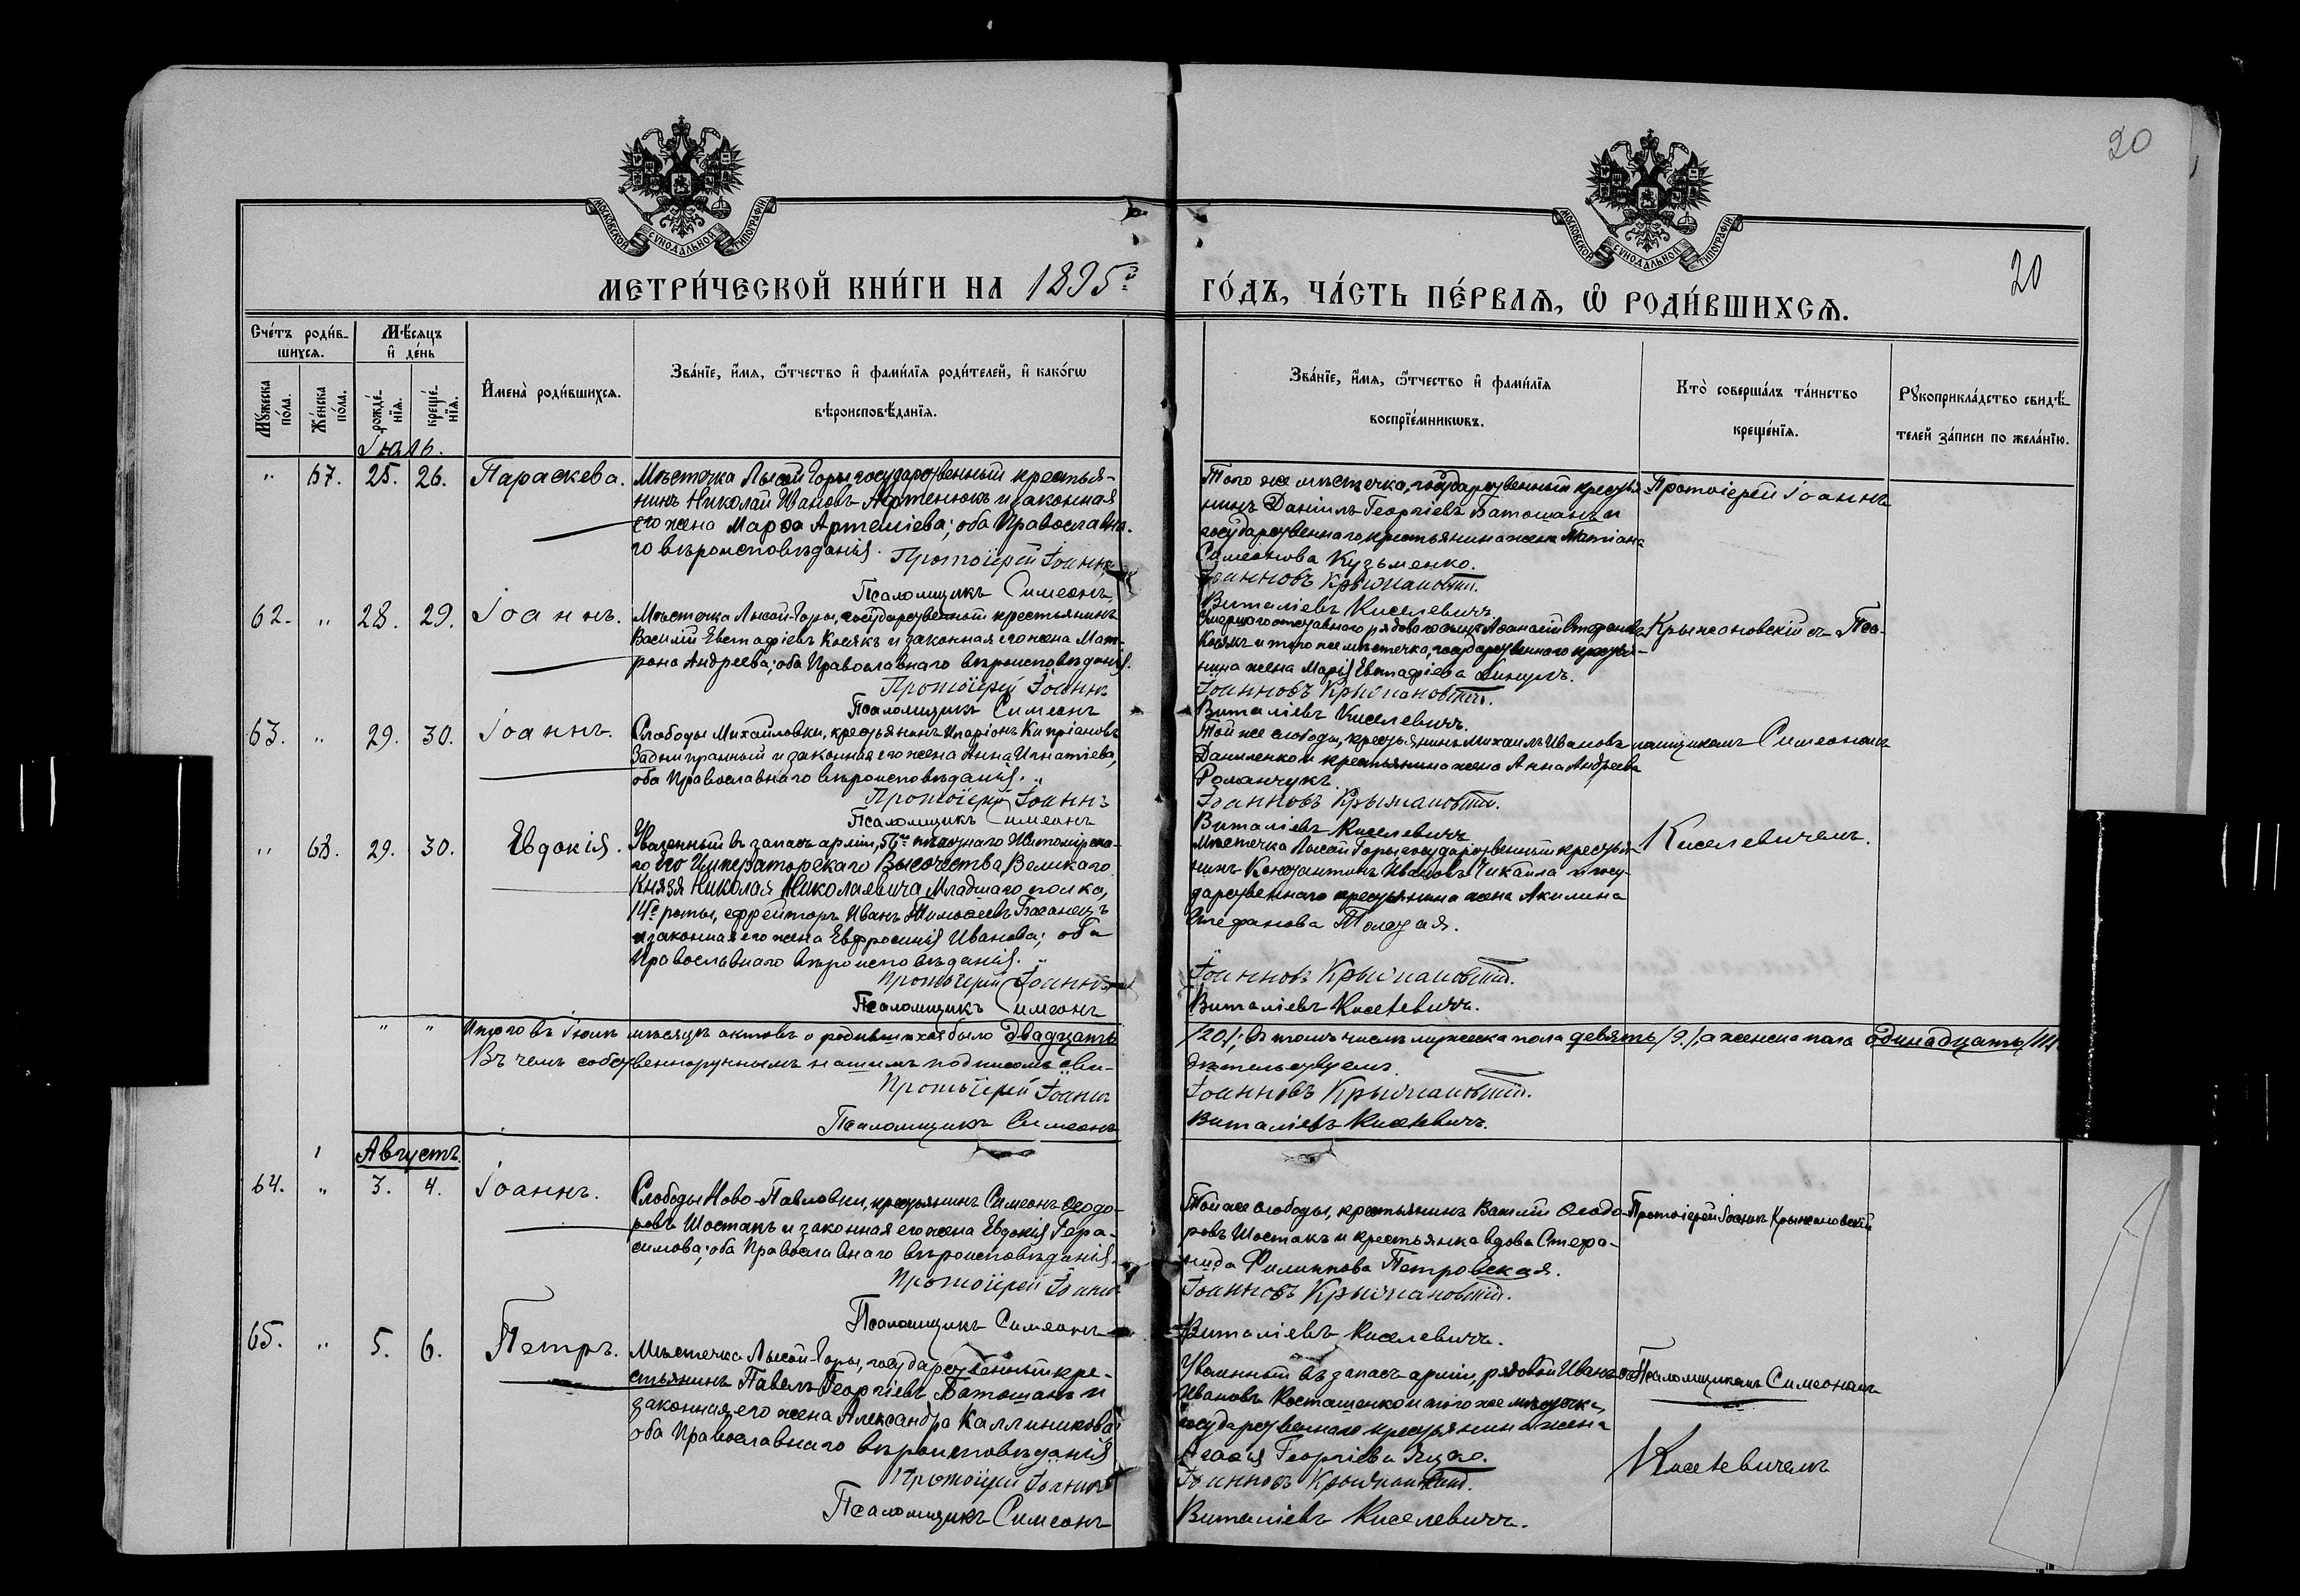 20
МОСКОВСКОЙ СѴНОДАЛЬНОЙ ТИПОГРАФІИ
МОСКОВСКОЙ СѴНОДАЛЬНОЙ ТИПОГРАФІИ
20
МЕТРИ́ЧЕСКОЙ КНИ́ГИ НА 1895й
ГО́ДЪ, ЧА́СТЬ ПЕ́РВАѦ, Ѡ҆ РОДИ́ВШИХСѦ.
Сче́тъ роди́в-
шихсѧ.
Мѣ́сѧцъ
и҆ де́нь
Мꙋ́жеска
по́ла.
Же́нска
по́ла.
рожде́-
нїѧ.
креще́-
нїѧ.
И҆мена̀ роди́вшихсѧ.
Зва́нїе, и҆́мѧ, ѻ҆́тчество и҆ фами́лїѧ роди́телей, и҆ како́гѡ
вѣроисповѣ́данїѧ.
Зва́нїе, и҆́мѧ, ѻ҆́тчество и҆ фами́лїѧ
воспрїе́мникѡвъ.
Кто̀ соверша́лъ та́инство
креще́нїѧ.
Рꙋкоприкла́дство свидѣ́-
телей за́писи по жела́нїю.
Іюль.
" 67. 25. 26. Параскева.
Мѣстечка Лысой Горы государственный крестья-
нинъ Николай Ивановъ Артенюкъ и законная
его жена Марѳа Артеміева; оба Православна-
го вѣроисповѣданія.
Протоіерей Іоаннъ
Псаломщикъ Симеонъ
Того же мѣстечка, государственный крестья
нинъ Даніилъ Георгіевъ Батошанъ и
государственнаго крестьянина жена Татіана
Симеонова Кузьменко.
Іоанновъ Крыжановскій.
Виталіевъ Киселевичъ
Протоіерей Іоаннъ
62. " 28. 29. Іоаннъ.
Мѣстечка Лысой-Горы, государственный крестьянинъ
Василій Евстафіевъ Косякъ и законная его жена Мат-
рона Андреева; оба Православнаго вѣроисповѣданія.
Протоіерей Іоаннъ
Псаломщикъ Симеонъ
Умершаго отставнаго рядоваго сынъ Аѳанасій
Косякъ и того же мѣстечка, государственнаго крестья-
нина жена Марія Евстафіева
Іоанновъ Крыжановскій.
Виталіевъ Киселевичъ.
Крыжановскій съ Пса-
63. " 29. 30. Іоаннъ.
Слободы Михайловки, крестьянинъ Иларіонъ Кипріановъ
и законная его жена Анна Игнатіева,
оба Православнаго вѣроисповѣданія.
Протоіерей Іоаннъ
Псаломщикъ Симеонъ
Той же слободы, крестьянинъ Михаилъ Ивановъ
Даниленко и крестьянина жена Анна Андреева
Романчукъ.
Іоанновъ Крыжановскій.
Виталіевъ Киселевичъ
ломщикомъ Симеономъ
" 68. 29. 30. Евдокія.
Уволенный въ запасъ арміи, 56го пѣхотнаго Житомірска-
го Его Императорскаго Высочества, Великаго
Князя Николая Николаевича Младшаго полка,
14й роты, ефрейторъ Иванъ Тимоѳеевъ
и законная его жена Евфросинія Иванова; оба
Православнаго вѣроисповѣданія.
Протоіерей Іоаннъ
Псаломщикъ Симеонъ
Мѣстечка Лысой Горы государственный крестья-
нинъ Константинъ Ивановъ Чикайла и госу-
дарственнаго крестьянина жена Акилина
Стефанова
Іоанновъ Крыжановскій.
Виталіевъ Киселевичъ.
Киселевичемъ.
" " Итого въ Іюлѣ мѣсяцѣ актовъ о родившихся было двадцать
/20/; въ томъ числѣ мужеска пола девять /9/, а женска пола одинадцать /11/
Въ чемъ собственноручнымъ нашимъ подписомъ сви-
дѣтельствуемъ.
Протоіерей Іоаннъ
Іоанновъ Крыжановскій.
Псаломщикъ Симеонъ
Виталіевъ Киселевичъ.
Августъ.
64. " 3. 4. Іоаннъ.
Слободы Ново-Павловки, крестьянинъ Симеонъ Ѳеодо-
ровъ Шостакъ и законная его жена Евдокія Гера-
симова; оба Православнаго вѣроисповѣданія.
Протоіерей Іоаннъ
Псаломщикъ Симеонъ
Той же слободы, крестьянинъ Василій Ѳеодо-
ровъ Шостакъ и крестьянка вдова Стефа-
нида Филиппова Петровская.
Іоанновъ Крыжановскій.
Виталіевъ Киселевичъ.
Протоіерей Іоаннъ Крыжановскій
65. " 5. 6. Петръ.
Мѣстечка Лысой-Горы, государственный кре-
стьянинъ Павелъ Георгіевъ Батошанъ и
законная его жена Александра Каллиникова
оба Православнаго вѣроисповѣданія
Протоіерей Іоаннъ
Псаломщикъ Симеонъ
Уволенный въ запасъ арміи, рядовой Иванъ
Ивановъ Косташенко и того же мѣстечка,
государственнаго крестьянина жена
Агаѳія Георгіева
Іоанновъ Крыжановскій.
Виталіевъ Киселевичъ.
съ Псаломщикомъ Симеономъ
Киселевичемъ